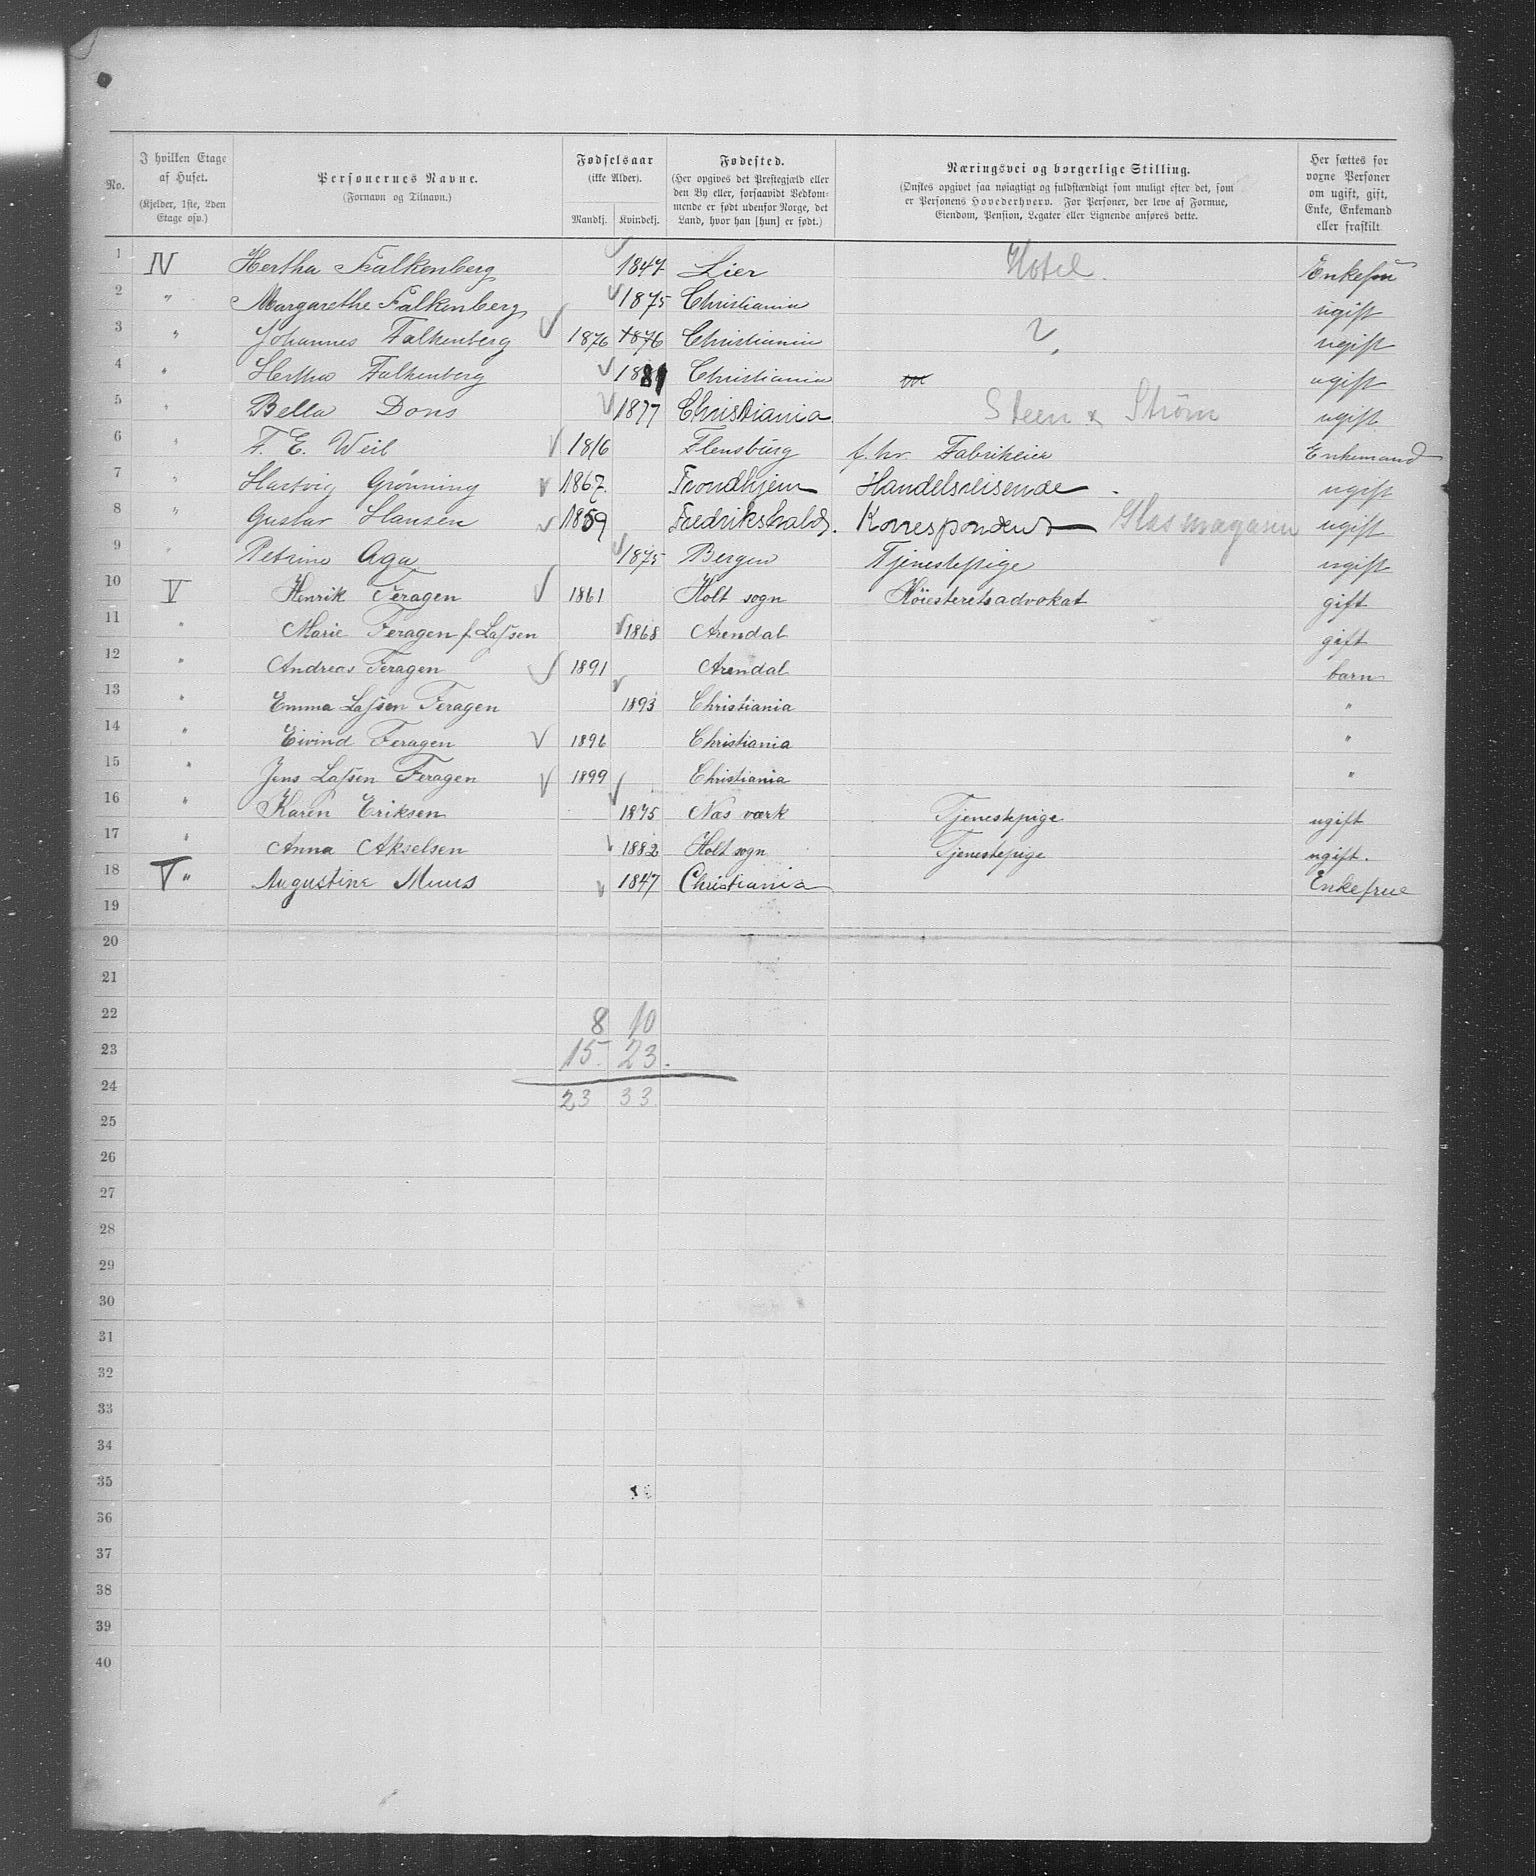 No.
I hvilken Etage af Huset.
(Kjelder, 1ste, 2den Etage osv.)
Personernes Navne.
(Fornavn og Tilnavn.)
Fødselsaar
(ikke Alder).
Mandkj. Kvindekj.
Fødested.
(Her opgives det Prestegjæld eller
den By eller, forsaavidt Vedkom-
mende er født udenfor Norge, det
Land, hvor han [hun] er født.)
Næringsvei og borgerlige Stilling.
(Ønskes opgivet saa nøiagtigt og fuldstændigt som muligt efter det, som
er Personens Hovederhverv. For Personer, der leve af Formue,
Eiendom, Pension, Legater eller Lignende anføres dette.
Her sættes for
vorne Personer
om ugift, gift,
Enke, Enkemand
eller fraskilt
1 IV Hertha Falkenberg 1847 Lier Hotel. Enkefru
2 " Margarethe Falkenberg 1875 Christiania ugift
3 " Johannes Falkenberg 1876 1876 Christiania ? ugift
4 " Hertha Falkenberg 1881 Christiania ugift
5 " Bella Dons 1877 Christiania. Steen & Strøm ugift
6 " F. E. Weil 1816 Flensburg f. hv. Fabrikeier Enkemand
7 " Hartvig Grønning 1867. Trondhjem Handelsreisende. ugift
8 " Gustav Hansen 1859 Fredrikshald. Korrespondent Glasmagasin ugift
9 " Petrine Aga 1875 Bergen Tjenestepige ugift
10 V Henrik Feragen 1861 Holt sogn Høiesteretsadvokat gift
11 " Marie Feragen f. Lassen 1868 Arendal gift
12 " Andreas Feragen 1891 Arendal barn
13 " Emma Lassen Feragen 1893 Christiania "
14 " Eivind Feragen 1896 Christiania "
15 " Jens Lassen Feragen 1899 Christiania "
16 " Karen Eriksen 1875 Næs værk Tjenestepige ugift
17 " Anna Akselsen 1882 Holt sogn Tjenestepige ugift.
18 V " Augustine Muus 1847 Christiania Enkefrue
19
20
21
22 8 10
23 15. 23.
24 23 33
25
26
27
28
29
30
31
32
33
34
35
36
37
38
39
40